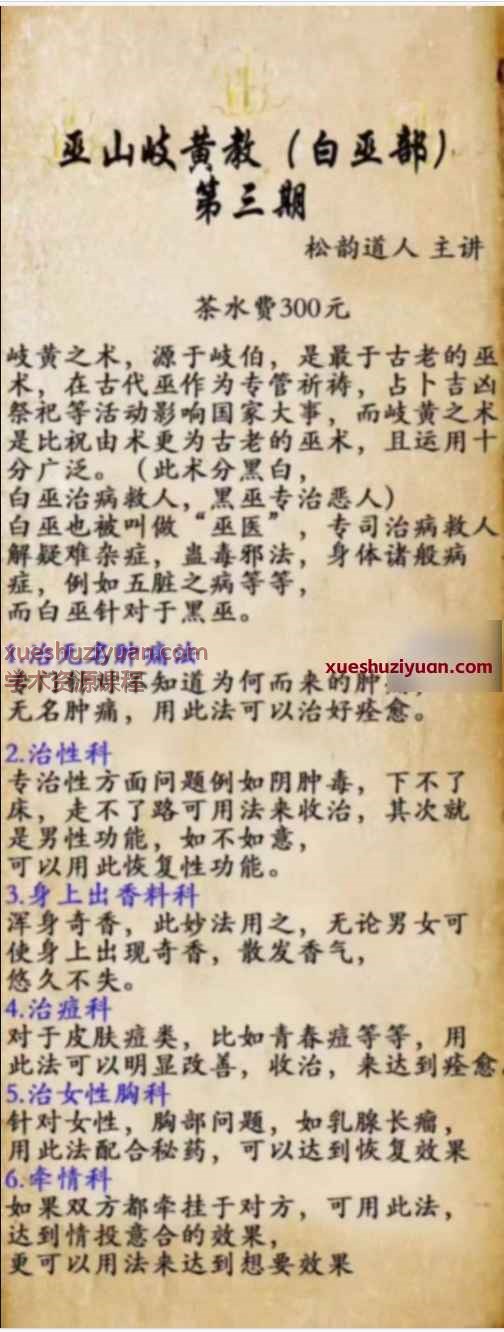 巫山岐黄教（白巫部）
第三期
松韵道人 主讲
茶水费300元
岐黄之术，源于岐伯，是最于古老的巫
术，在古代巫作为专管祈祷，占卜吉凶
祭祀等活动影响国家大事，而岐黄之术
是比祝由术更为古老的巫术，且运用十
分广泛。（此术分黑白，
白巫治病救人，黑巫专治恶人）
白巫也被叫做“巫医”，专司治病救人
解疑难杂症，蛊毒邪法，身体诸般病
症，例如五脏之病等等，
而白巫针对于黑巫。
1.治无名肿痛法
xueshuziyuan.com
学术资源课程
xueshuziyuan.com
专门针对不知道为何而来的肿
无名肿痛，用此法可以治好痊愈。
2.治性科
专治性方面问题例如阴肿毒，下不了
床，走不了路可用法来收治，其次就
是男性功能，如不如意，
可以用此恢复性功能。
3.身上出香料科
浑身奇香，此妙法用之，无论男女可
使身上出现奇香，散发香气，
悠久不失。
4.治痘科
对于皮肤痘类，比如青春痘等等，用
此法可以明显改善，收治，来达到痊愈。
5.治女性胸科
针对女性，胸部问题，如乳腺长瘤，
用此法配合秘药，可以达到恢复效果
6.牵情科
如果双方都牵挂于对方，可用此法，
达到情投意合的效果，
更可以用法来达到想要效果